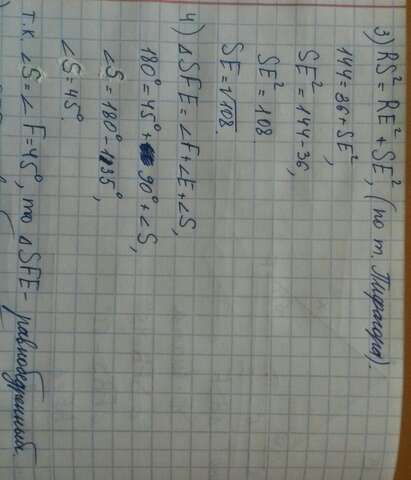 3) RS² = RE² + SE², (по т. Пифагора).
144 = 36 + SE²,
SE² = 144 - 36,
SE² = 108.
SE = √108.
4) △SFE = ∠F + ∠E + ∠S,
180° = 45° + 90° + ∠S,
∠S = 180° - 135°,
∠S = 45°.
т.к ∠S = ∠F = 45°, то △SFE - равнобедренный.